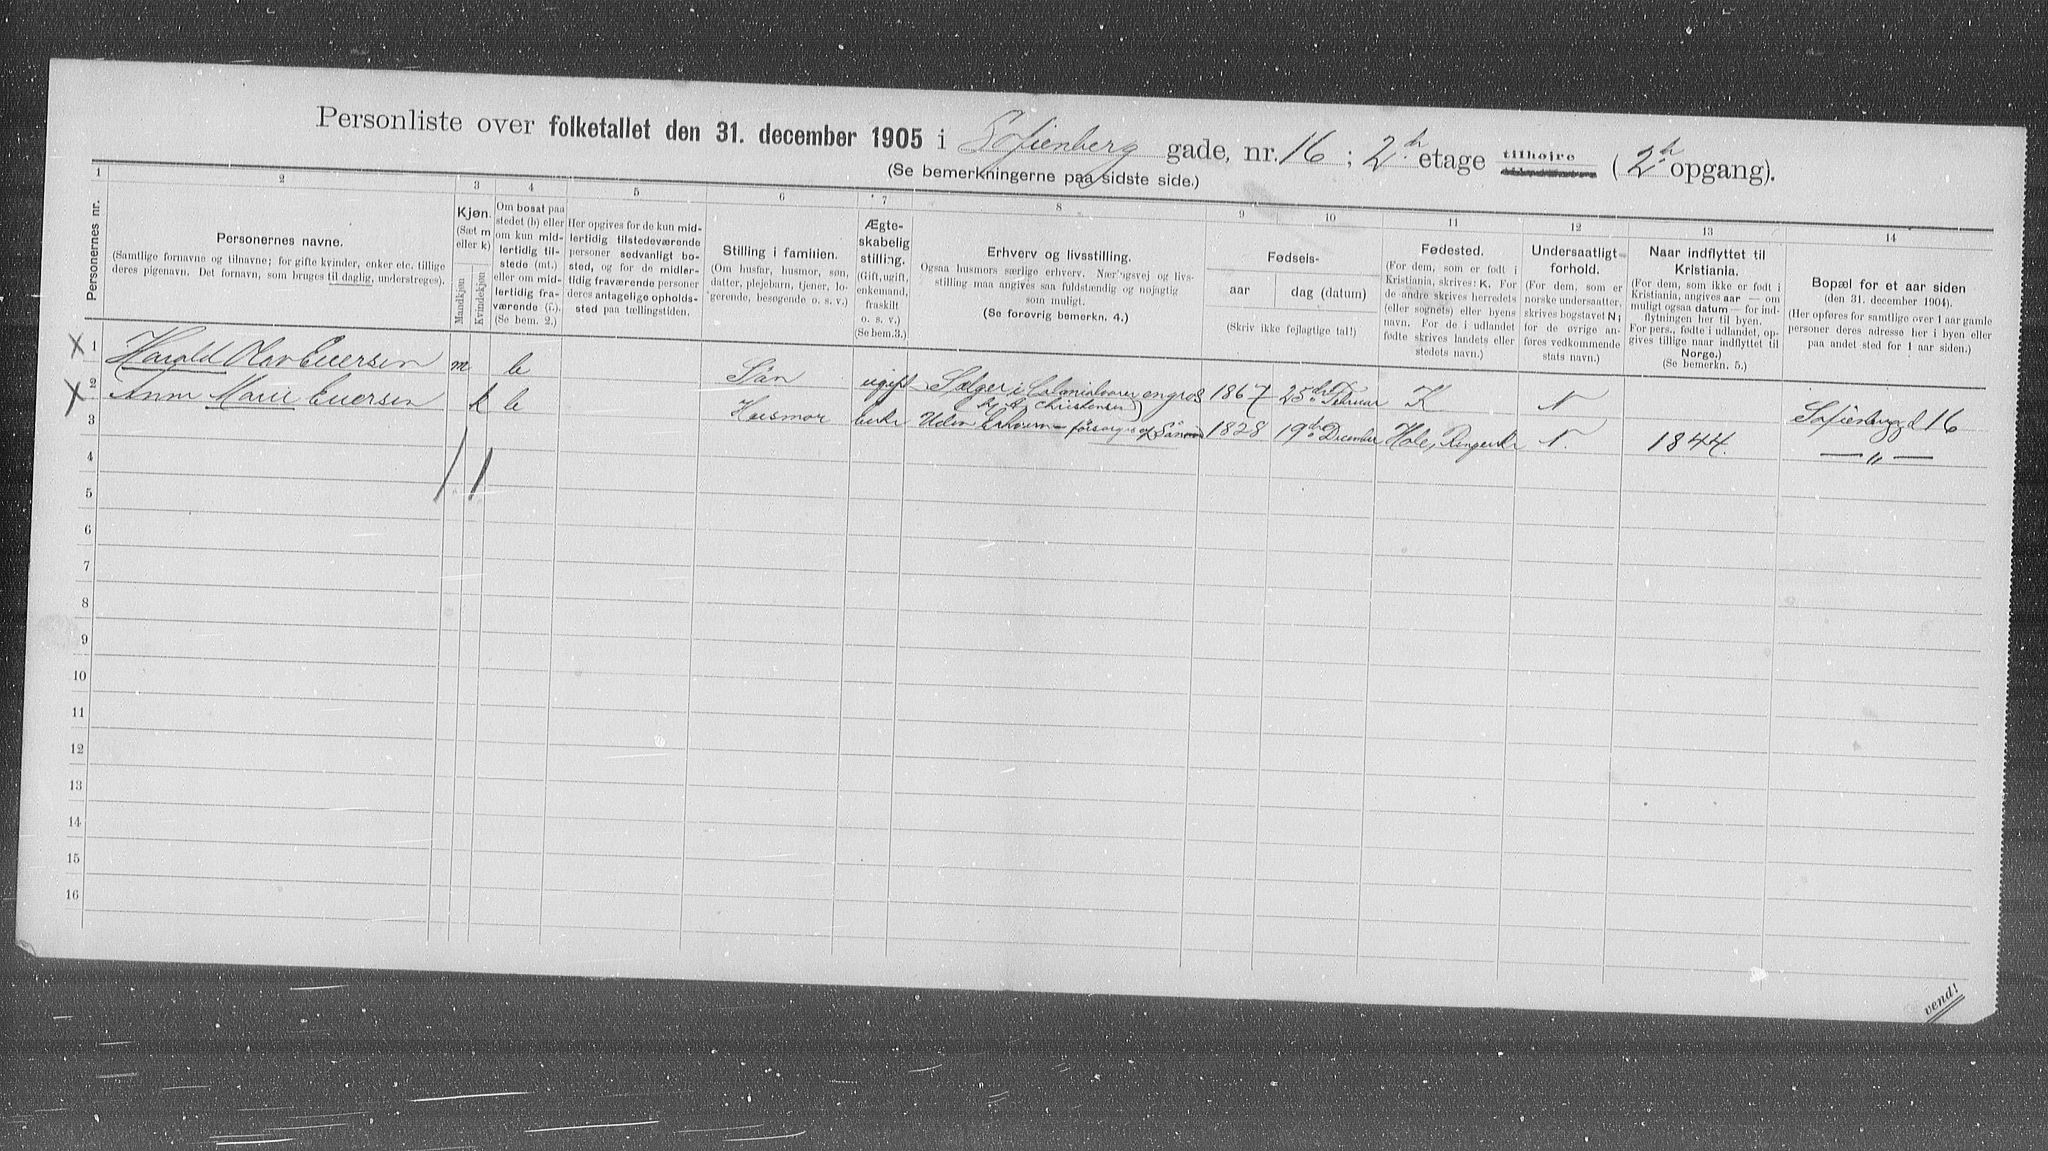 Personliste over folketallet den 31. december 1905 i Sofienberg gade, nr. 16 ; 2. etage tilhøire (2. opgang).
(Se bemerkningerne paa sidste side.)
1 2 3 4 5 6 7 8 9 10 11 12 13 14
Personernes nr.
Personernes navne.
(Samtlige fornavne og tilnavne; for gifte kvinder, enker etc. tillige
deres pigenavn. Det fornavn, som bruges til daglig, understreges).
Kjøn.
(Sæt m
eller k)
Mandkjøn
Kvindekjøn
Om bosat paa
stedet (b) eller
om kun mid-
lertidig til-
stede (mt.)
eller om mid-
lertidig fra-
værende (f.).
(Se bem. 2.)
Her opgives for de kun mid-
lertidig tilstedeværende
personer sedvanligt bo-
sted, og for de midler-
tidig fraværende personer
deres antagelige opholds-
sted paa tællingstiden.
Stilling i familien.
(Om husfar, husmor, søn,
datter, plejebarn, tjener, lo-
gerende, besøgende o. s. v.)
Ægte-
skabelig
stilling.
(Gift, ugift,
enkemand,
fraskilt
o. s. v.)
(Se bem. 3.)
Erhverv og livsstilling.
Ogsaa husmors særlige erhverv. Næringsvej og livs-
stilling maa angives saa fuldstændig og nøjagtig
som muligt.
(Se forøvrig bemerkn. 4.)
Fødsels-
aar dag (datum)
(Skriv ikke fejlagtige tal!)
Fødested.
(For dem, som er født i
Kristiania, skrives: K. For
de andre skrives herredets
(eller sognets) eller byens
navn. For de i udlandet
fødte skrives landets eller
stedets navn.)
Undersaatligt-
forhold.
(For dem, som er
norske undersaatter,
skrives bogstavet N;
for de øvrige an-
føres vedkommende
stats navn.)
Naar indflyttet til
Kristiania.
(For dem, som ikke er født i
Kristiania, angives aar — om
muligt ogsaa datum — for ind-
flytningen her til byen.
For pers., fødte i udlandet, op-
gives tillige naar indflyttet til
Norge.)
(Se bemerkn. 5.)
Bopæl for et aar siden
(den 31. december 1904).
(Her opføres for samtlige over 1 aar gamle
personer deres adresse her i byen eller
paa andet sted for 1 aar siden.)
1 Harald Olav Eversen m b Sön ugift Sælger i Colonialvarer engros 1867 25 Februar K N Sofienbergd 16
Christensen)
2 Anne Marie Eversen k b Husmor Uden Erhverv – forsörges af Sönnen 1828 19 December Hole, Ringerike N. 1844. — " —
3
4
5
6
7
8
9
10
11
12
13
14
15
16
vend!